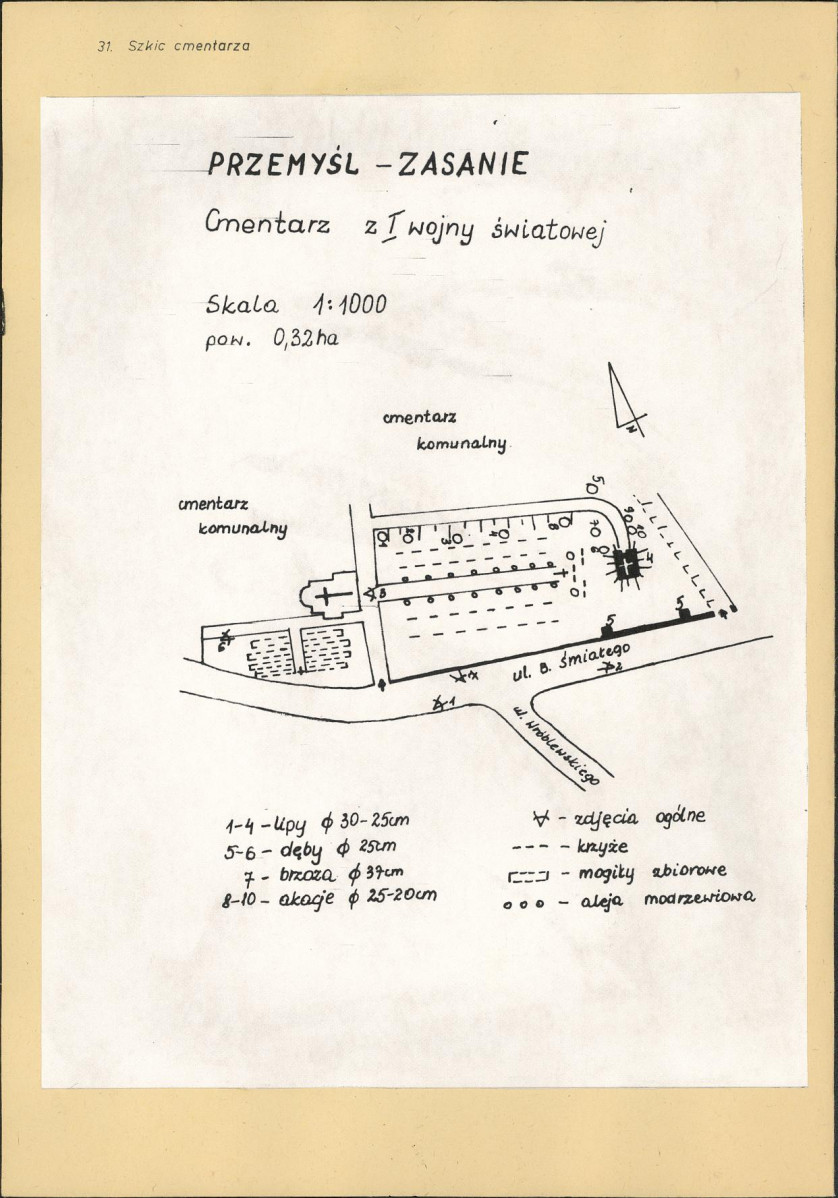 31. Szkic cmentarza
PRZEMYŚL – ZASANIE
Cmentarz z I wojny światowej
Skala 1:1000
pow. 0,32 ha
cmentarz
komunalny
cmentarz
komunalny
N
5
7
9
10
8
1
2
3
4
6
4
3
6
5
5
ul. B. Śmiałego
2
1
ul. Wróblewskiego
1-4 – lipy ϕ 30-25cm
5-6 – dęby ϕ 25cm
7 – brzoza ϕ 37cm
8-10 – akacje ϕ 25-20cm
– zdjęcia ogólne
--- – krzyże
– mogiły zbiorowe
o o o – aleja modrzewiowa